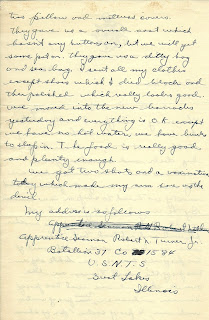 two pillow and mattress covers.
They gave us a small coat which
hasn't any buttons on, but we will get
some put on. They gave us a ditty bag
and sea bag. I sent all my clothes
except shoes which I died black and
then polished which really looks good.
we moved into the new barracks
yesterday and everything is O.K. except
we have no hot water, we have bunks
to sleep in. The food is really good
and plenty enough.
we got two shots and a vaccination
today which make my arm sore as the
devil.
My address is as follows
Apprentice Seaman Robert N. Turner Jr.
Batallion 37 Co 1584
U.S.N.T.S
Great Lakes
Illinois